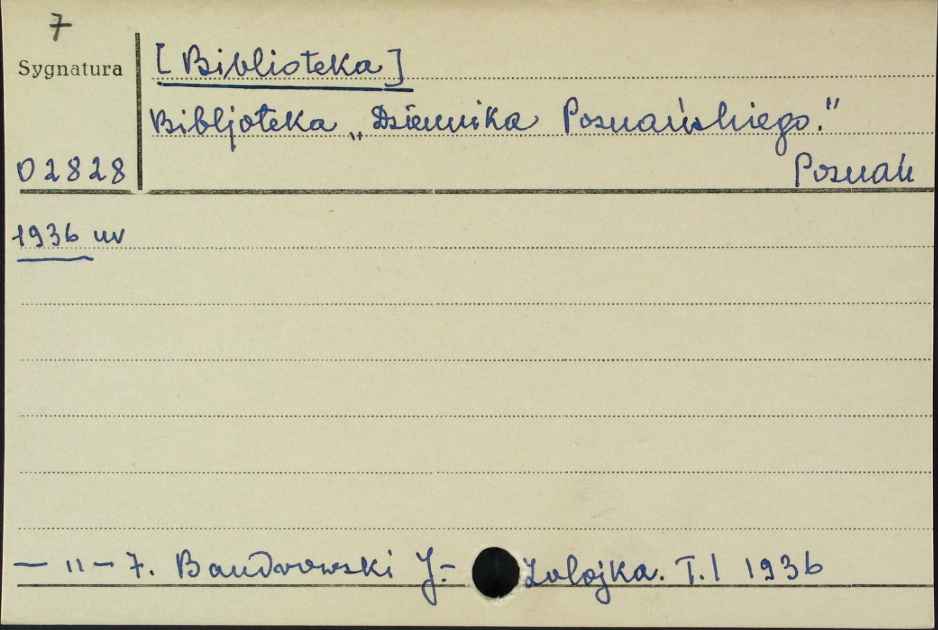 7
Sygnatura
[Biblioteka]
Bibljoteka „Dziennika Poznańskiego."
D 2828
Poznań
1936 uv
— 11 — 7. Bandrowski J. - Zolojka. T.I 1936